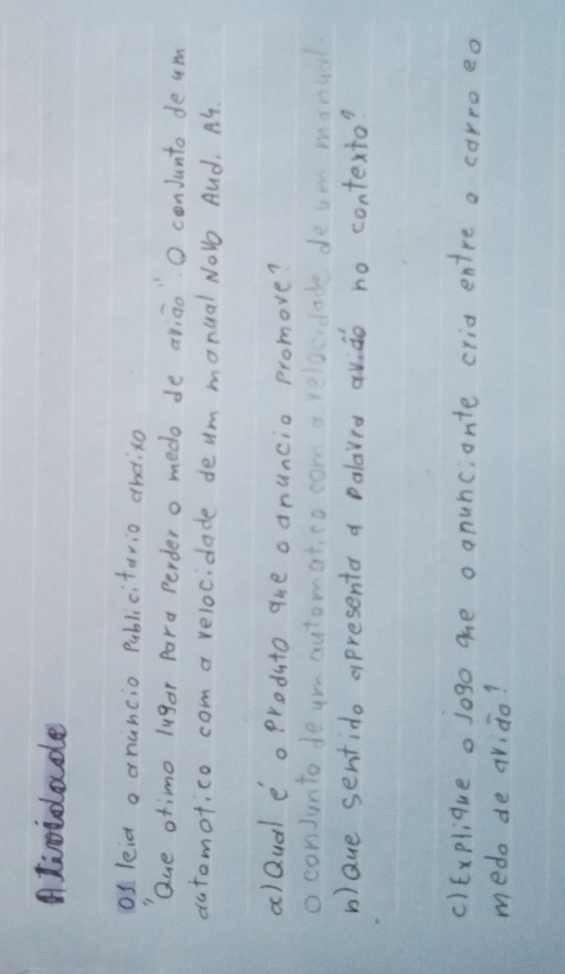 Atividade
01 leia o anúncio Publicitario abaixo
"Que otimo lugar Para Perder o medo de avião". O conJunto de um
automotico com a velocidade de um manual Novo Audi A4.
a) Qual é o Produto que o anuncio Promove?
o conJunto de um automatico com a velocidade de um manual.
b) que sentido apresenta a Palavra avião no contexto?
c) Explique o Jogo que o anunciante cria entre o carro e o
medo de avião?